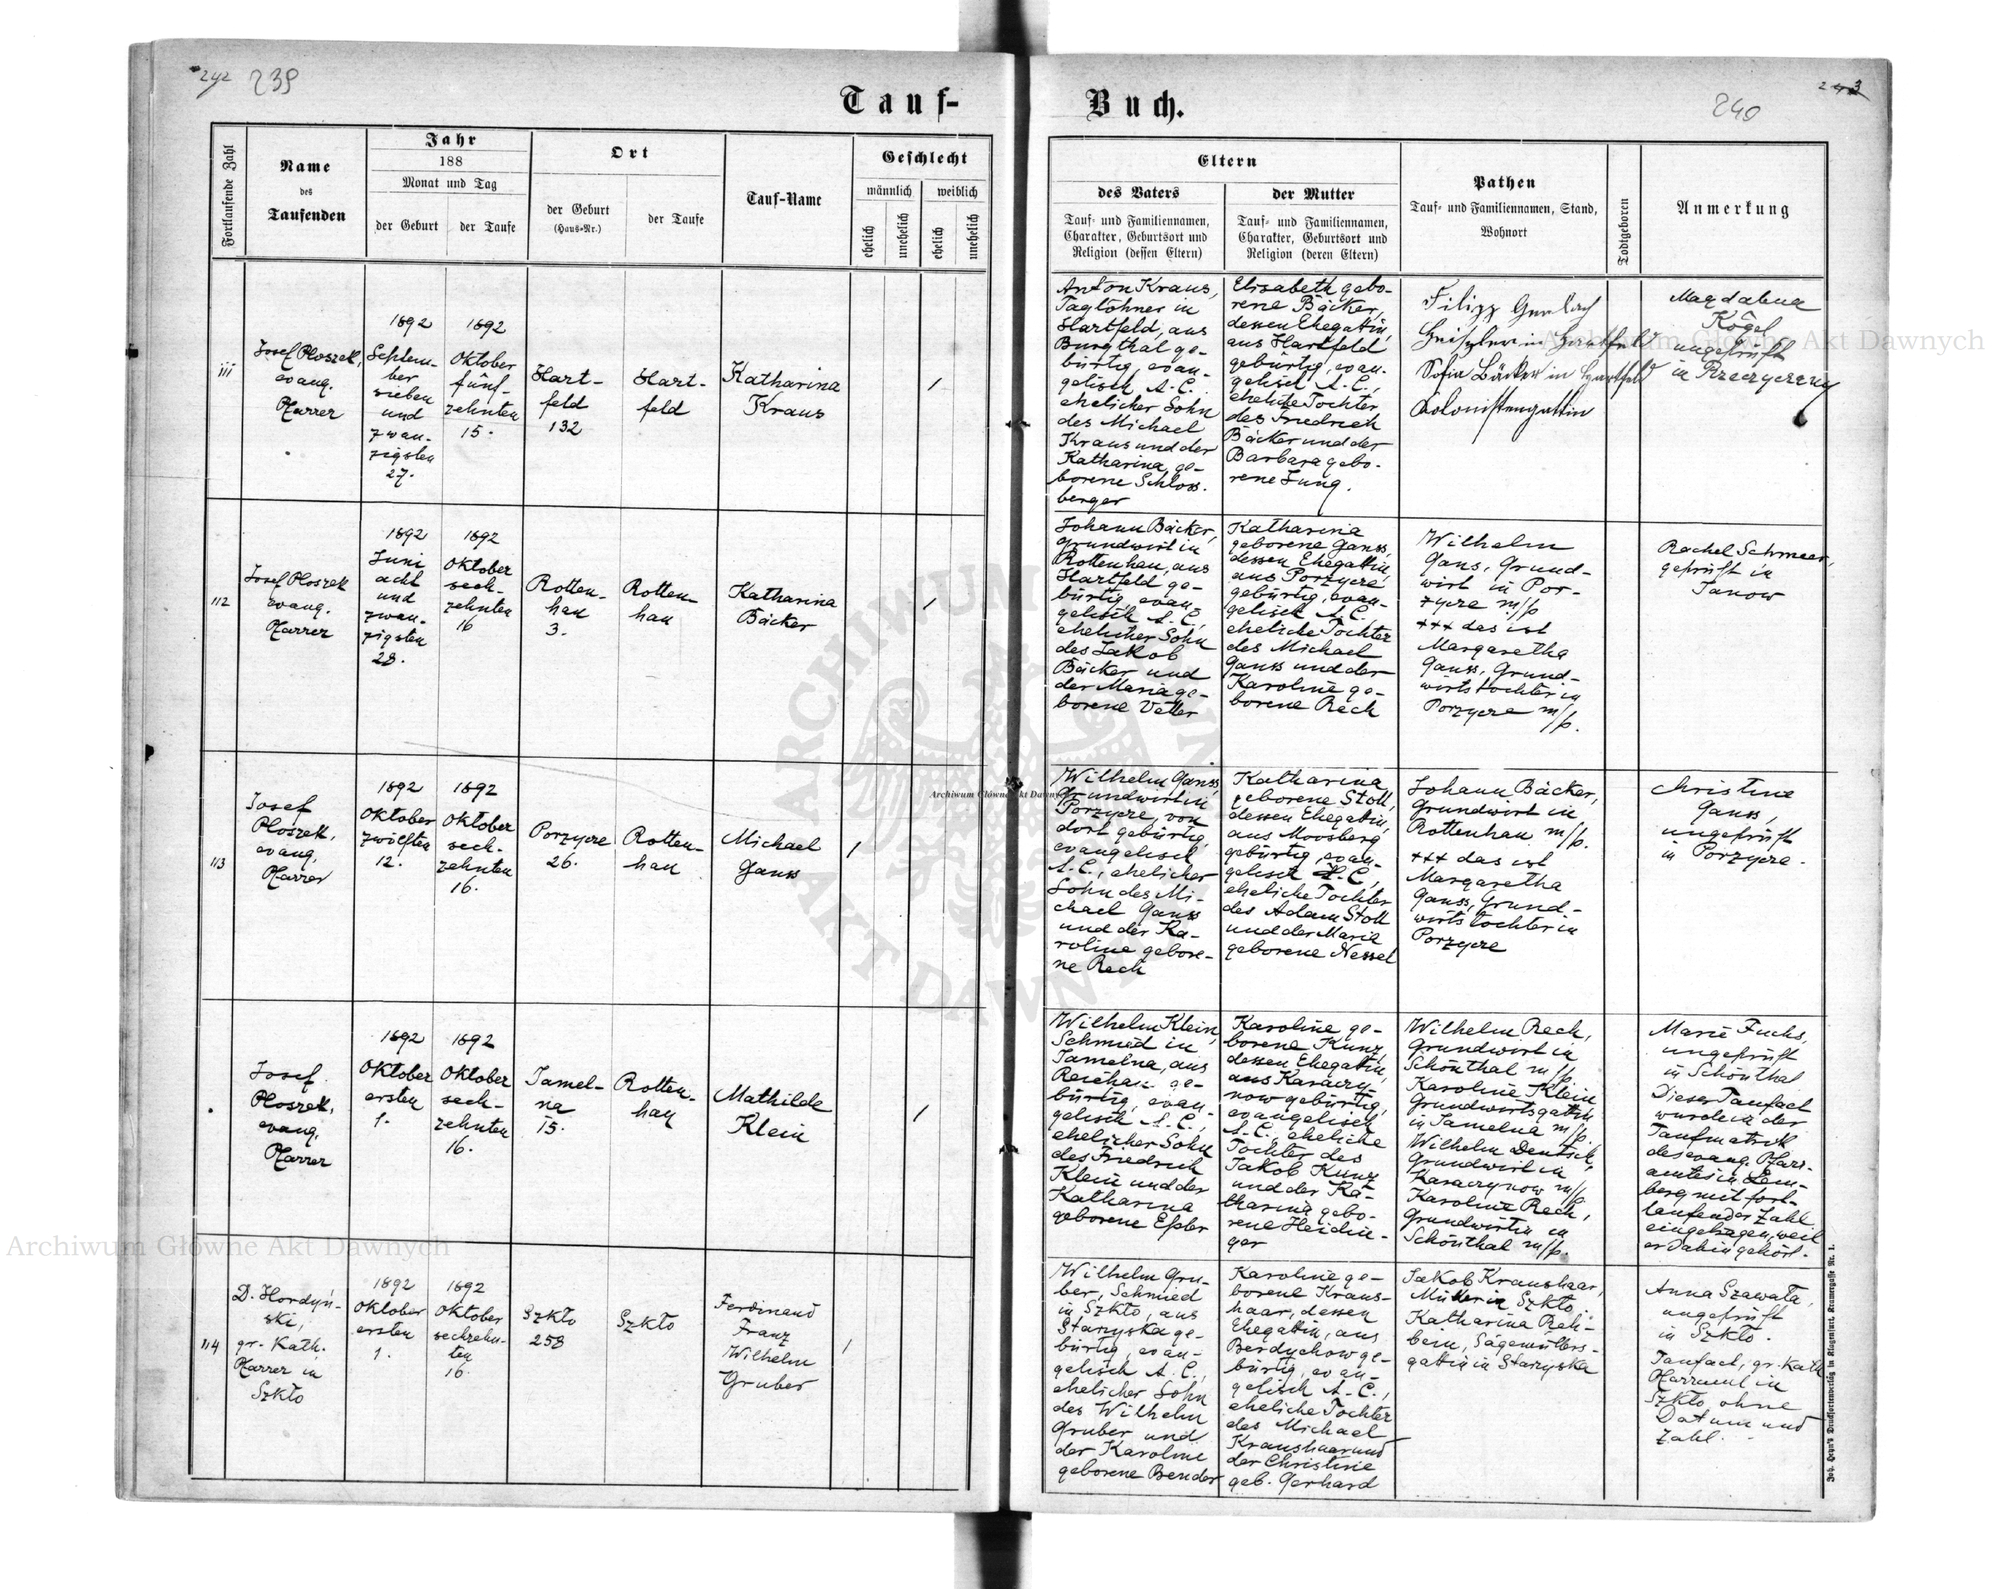 242 239
Tauf-
Buch.
243
240
Fortlaufende Zahl
Name
des
Taufenden
Jahr
188
Monat und Tag
der Geburt
der Taufe
Ort
der Geburt
(Haus-Nr.)
der Taufe
Tauf-Name
Geschlecht
männlich
weiblich
ehelich
unehelich
ehelich
unehelich
Eltern
des Vaters
Tauf- und Familiennamen,
Charakter, Geburtsort und
Religion (dessen Eltern)
der Mutter
Tauf- und Familiennamen,
Charakter, Geburtsort und
Religion (deren Eltern)
Pathen
Tauf- und Familiennamen, Stand,
Wohnort
Todtgeboren
Anmerkung
111
Josef Ploszek,
evang.
Pfarrer
1892
Septem-
ber
sieben
und
zwan-
zigsten
27.
1892
Oktober
fünf-
zehnten
15.
Hart-
feld
132
Hart-
feld
Katharina
Kraus
/
Anton Kraus,
Taglöhner in
Hartfeld, aus
Burgthal ge-
bürtig, evan-
gelisch A. C.
ehelicher Sohn
des Michael
Kraus und der
Katharina, ge-
borene Schloss-
berger
Elisabeth gebo-
rene Bäcker,
dessen Ehegattin,
aus Hartfeld
gebürtig, evan-
gelisch A. C.,
eheliche Tochter
des Friedrich
Bäcker und der
Barbara gebo-
rene Jung.
Filipp Gerlach
in Hartfeld
Sofia Bäcker in Hartfeld
Kolonistengattin
Magdalena
Kögel
ungeprüft
in
112
Josef Ploszek
evang.
Pfarrer
1892
Juni
acht
und
zwan-
zigsten
28.
1892
Oktober
sech-
zehnten
16
Rotten-
han
3.
Rotten-
han
Katharina
Bäcker
/
Johann Bäcker,
Grundwirt in
Rottenhan, aus
Hartfeld ge-
bürtig, evan-
gelisch A. C.,
ehelicher Sohn
des Jakob
Bäcker und
der Maria ge-
borene Vetter
Katharina
geborene Ganss,
dessen Ehegattin,
aus Porzycze
gebürtig, evan-
gelisch A. C.
eheliche Tochter
des Michael
Ganss und der
Karoline ge-
borene Rech
Wilhelm
Gans, Grund-
wirt in Por-
zycze m/p
+++ das ist
Margaretha
Ganss, Grund-
wirtstochter in
Porzycze m/p.
Rachel Schmeer,
geprüft in
Janow
113
Josef
Ploszek,
evang.
Pfarrer
1892
Oktober
zwölften
12.
1892
Oktober
sech-
zehnten
16.
Porzycze
26.
Rotten-
han
Michael
Ganss
/
Wilhelm Ganss,
Grundwirt in
Porzycze, von
dort gebürtig,
evangelisch
A. C., ehelicher
Sohn des Mi-
chael Ganss
und der Ka-
roline gebore-
ne Rech
Katharina
geborene Stoll,
dessen Ehegattin,
aus Moosberg
gebürtig, evan-
gelisch H. C.,
eheliche Tochter
des Adam Stoll
und der Maria
geborene Nessel
Johann Bäcker,
Grundwirt in
Rottenhan m/p.
+++ das ist
Margaretha
Ganss, Grund-
wirtstochter in
Porzycze
Christine
Ganss,
ungeprüft
in Porzycze.
Josef
Ploszek,
evang.
Pfarrer
1892
Oktober
ersten
1.
1892
Oktober
sech-
zehnten
16.
Jamel-
na
15.
Rotten-
han
Mathilde
Klein
/
Wilhelm Klein,
Schmied in
Jamelna, aus
Reichau ge-
bürtig, evan-
gelisch A. C.,
ehelicher Sohn
des Friedrich
Klein und der
Katharina
geborene Epler
Karoline ge-
borene Kunz,
dessen Ehegattin,
aus Karaczy-
now gebürtig,
evangelisch
A. C., eheliche
Tochter des
Jakob Kunz
und der Ka-
tharina gebo-
rene Heidin-
ger
Wilhelm Rech,
Grundwirt in
Schönthal m/p.
Karoline Klein
Grundwirtsgattin
in Jamelna m/p.
Wilhelm Deutsch,
Grundwirt in
Karaczynow m/p.
Karoline Rech,
Grundwirtin in
Schönthal m/p.
Marie Fuchs,
ungeprüft
in Schönthal
Dieser Taufact
wurde in der
Taufmatrik
des evang. Pfarr-
amtes in Lem-
berg mit fort-
laufender Zahl
eingetragen, weil
er dahin gehört.
114
D. Hordyń-
ski,
gr. Kath.
Pfarrer in
Szkło
1892
Oktober
ersten
1.
1892
Oktober
sechzehn-
ten
16.
Szkło
258
Szkło
Ferdinand
Franz
Wilhelm
Gruber
/
Wilhelm Gru-
ber, Schmied
in Szkło, aus
Starzyska ge-
bürtig, evan-
gelisch A. C.,
ehelicher Sohn
des Wilhelm
Gruber und
der Karoline
geborene Bender
Karoline ge-
borene Kraus-
haar, dessen
Ehegattin, aus
Berdychow ge-
bürtig, evan-
gelisch A. C.,
eheliche Tochter
des Michael
Kraushaar und
der Christine
geb. Gerhard
Jakob Kraushaar,
Müller in Szkło,
Katharina Reh-
bein, Sägemüllers-
gattin in Starzyska
Anna Szawała,
ungeprüft
in Szkło.
Taufact, gr. Kath.
Pfarramt in
Szkło, ohne
Datum und
Zahl.
Joh. Heyn's Drucksortenverlag in Klagenfurt, Kramergasse Nr. 1.
Archiwum Główne Akt Dawnych
Archiwum Główne Akt Dawnych
Archiwum Główne Akt Dawnych